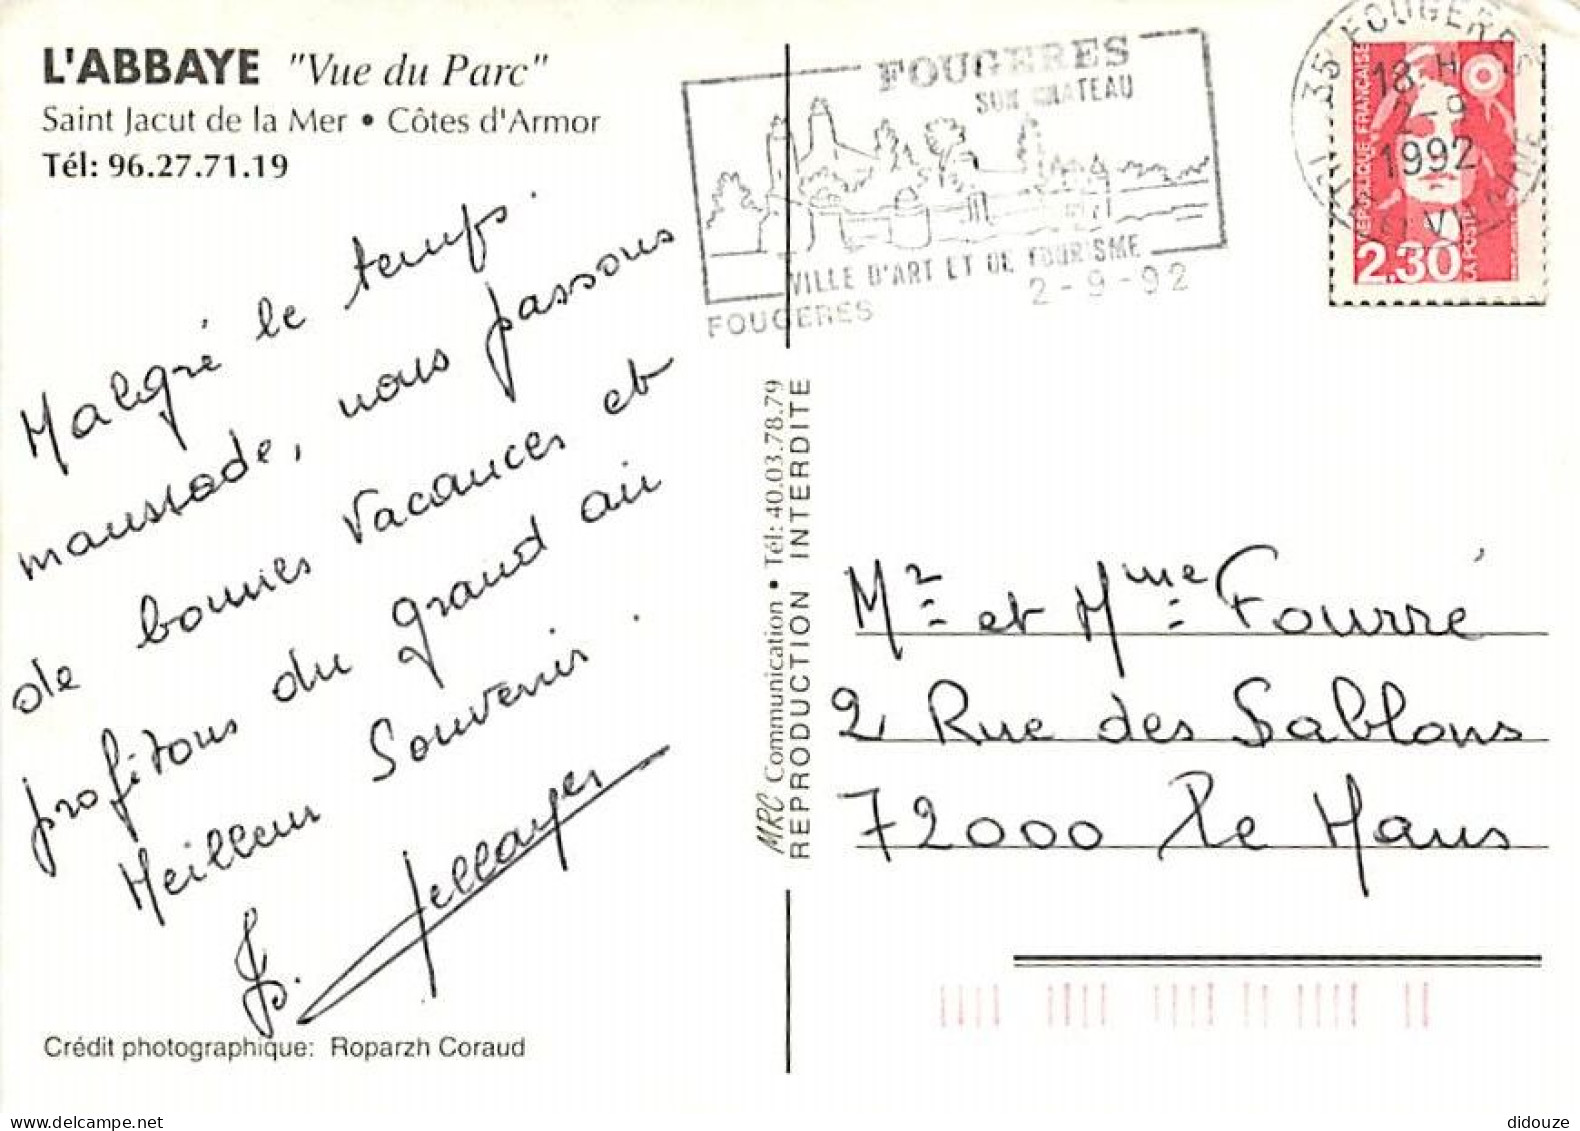 L'ABBAYE "Vue du Parc"
Saint Jacut de la Mer • Côtes d'Armor
Tél: 96.27.71.19
Malgré le temps
maussade, nous passons
de bonnes vacances et
profitons du grand air.
Meilleur Souvenir
Crédit photographique: Roparzh Coraud
FOUGERES
SON CHATEAU
VILLE D'ART ET DE TOURISME
FOUGERES 2-9-92
35 FOUGERES
18 H
2-9
1992
REPUBLIQUE FRANCAISE
2.30
LA POSTE
MRC Communication • Tél: 40.03.78.79
REPRODUCTION INTERDITE
Mr et Mme Fourré
2 Rue des Sablons
72000 Le Mans
didouze